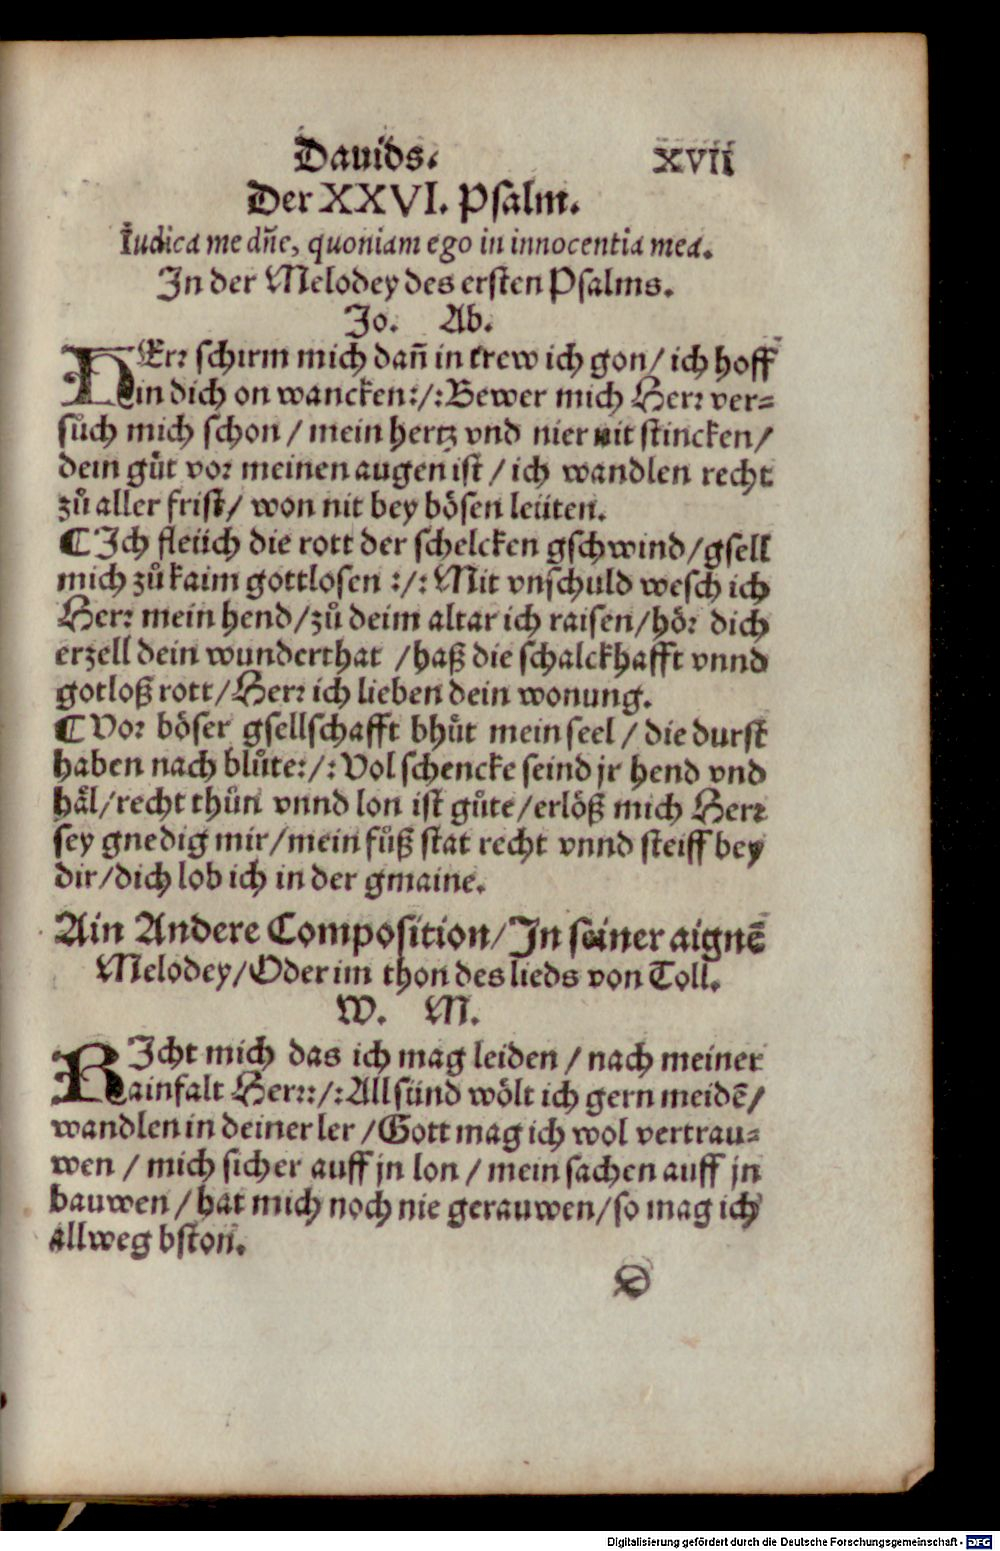 Dauids. XVII
Der XXVI. Psalm.
Iudica me dn̄e, quoniam ego in innocentia mea.
In der Melodey des ersten Psalms.
Jo. Ab.
HErr schirm mich dañ in trew ich gon / ich hoff
in dich on wancken :/: Bewer mich Herr ver=
sůch mich schon / mein hertz vnd nier nit stincken /
dein gůt vor meinen augen ist / ich wandlen recht
zů aller frist / won nit bey bösen leüten.
¶ Ich fleüch die rott der schelcken gschwind / gsell
mich zů kaim gottlosen :/: Mit vnschuld wesch ich
Herr mein hend / zů deim altar ich raisen / hör dich
erzell dein wunderthat / haß die schalckhafft vnnd
gotloß rott / Herr ich lieben dein wonung.
¶ Vor böser gsellschafft bhůt mein seel / die durst
haben nach blůte :/: Vol schencke seind jr hend vnd
häl / recht thůn vnnd lon ist gůte / erlöß mich Herr
sey gnedig mir / mein fůß stat recht vnnd steiff bey
dir / dich lob ich in der gmaine.
Ain Andere Composition / In seiner aignē
Melodey / Oder im thon des lieds von Toll.
W. M.
RIcht mich das ich mag leiden / nach meiner
ainfalt Herr :/: All sünd wölt ich gern meidē /
wandlen in deiner ler / Gott mag ich wol vertrau=
wen / mich sicher auff jn lon / mein sachen auff jn
bauwen / hat mich noch nie gerauwen / so mag ich
allweg bston.
Digitalisierung gefördert durch die Deutsche Forschungsgemeinschaft - DFG